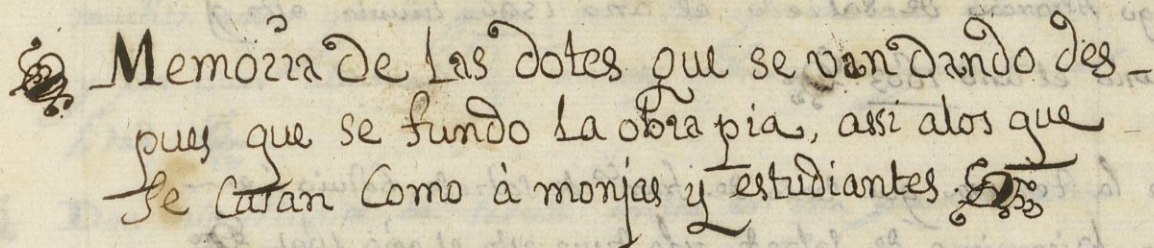 Memoria de las dotes que se van dando des-
pues que se fundo la obra pia, assi alos que
se casan como à monjas y estudiantes